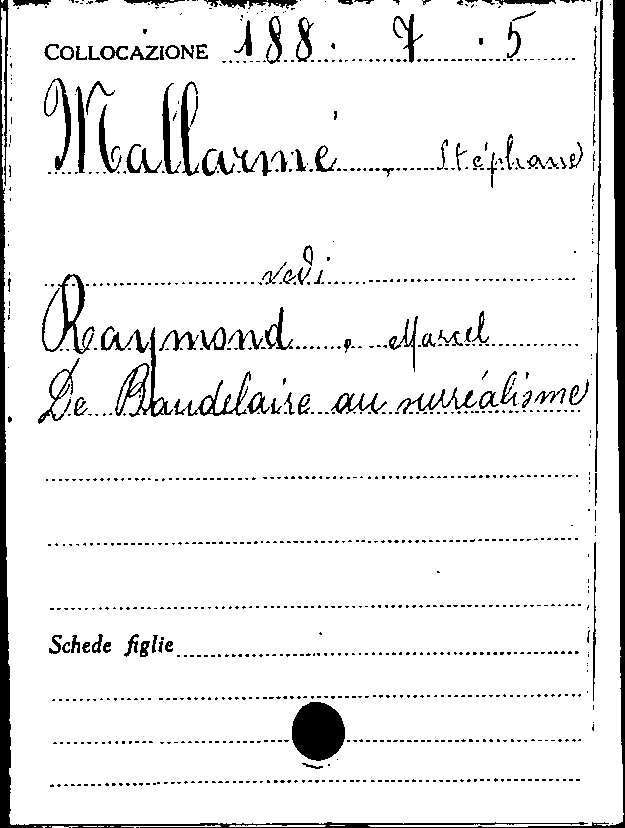 COLLOCAZIONE 188. 7 . 5
Mallarmé, Stéphane
vedi
Raymond, Marcel
De Baudelaire au surréalisme
Schede figlie